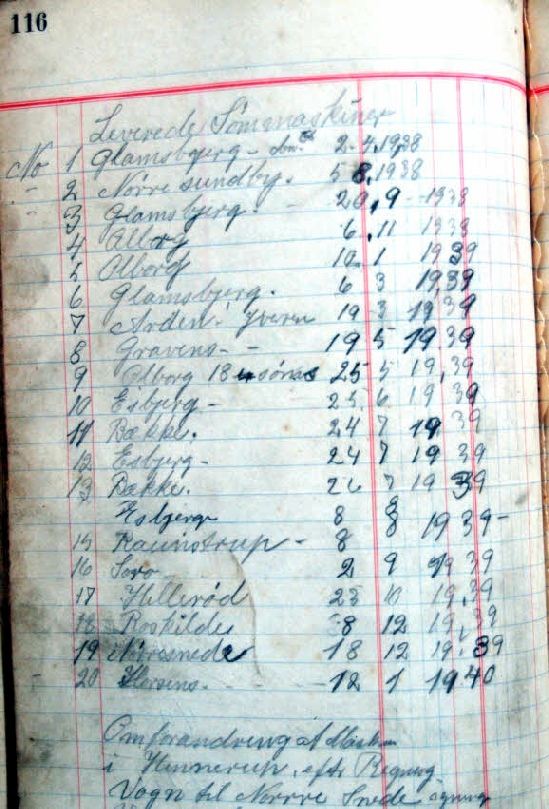 116
Leverede Sömmaskiner
No 1 Glamsbjerg - 2-4,1938
" 2 Nörresundby. 5 8,1938
" 3 Glamsbjerg. - 20,9-1938
4 Alborg 6.11 1938
5 Alborg 10 1 1939
6 Glamsbjerg. 6 3 1939
7 Arden. 19-3 1939
8 Gravens - - 19 5 1939
9 Alborg 18 25 5 19,39
10 Esbjerg - 25 6 1939
11 Bække. 24 7 19 39
12 Esbjerg - 24 7 19 39
13 Bække. 26 7 19 39
Esbjerg 8 8 1939-
15 Ravnstrup - 8 8
16 Soro 2 9 1939
17 Hillerød 23 10 19,39
18 Roskilde 8 12 19,39
19 18 12 19.39
20 Horsens. - - - 12 1 1940
Omforandring af
i Hinnerup, efter Regning
Vogn til Nörre Snede